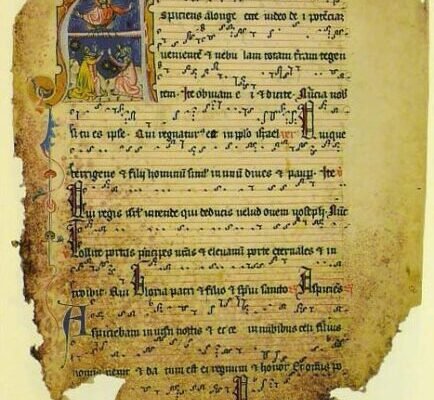 Aspiciens alonge ecce video de i potēciaȝ
uenientē ⁊ nebulam totam t̄ram tegen
tem· Ite obuiam e i ⁊ dicite· Nūcia nob̄
si tu es ipse· Qui regnatur' es in pplo israel Quique
terrigene ⁊ filij hominū siml' in unū diues ⁊ paup̄· Ite
Qui regis isrl' intende qui deducis velud ovem yoseph· Nūc
Tollite portas p̄ncipes vr̄as ⁊ eleuamī porte eternales ⁊ in
troibit· Qui Gloria patri ⁊ filio ⁊ spūi sancto Aspiciēs
Aspiciebam in visu noctis ⁊ ecce in nubibus celi filius
hominis uenit ⁊ da tum est ei regnum ⁊ honor Et omīs po